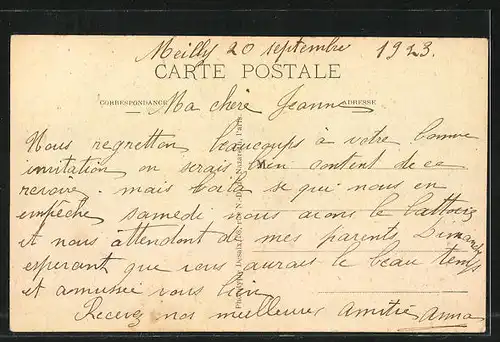 Meilly 20 septembre 1923.
CARTE POSTALE
CORRESPONDANCE
ADRESSE
Ma chère Jeanne
Nous regretton beaucoups à votre bonne
invitation on serais bien content de ce
revoir. mais voila se qui nous en
empêche samedi nous avons le battoir
et nous attendont de mes parents Dimanche
esperant que vous aurais le beau temps
et amusée vous bien
Recevez nos meilleures amitié Anna